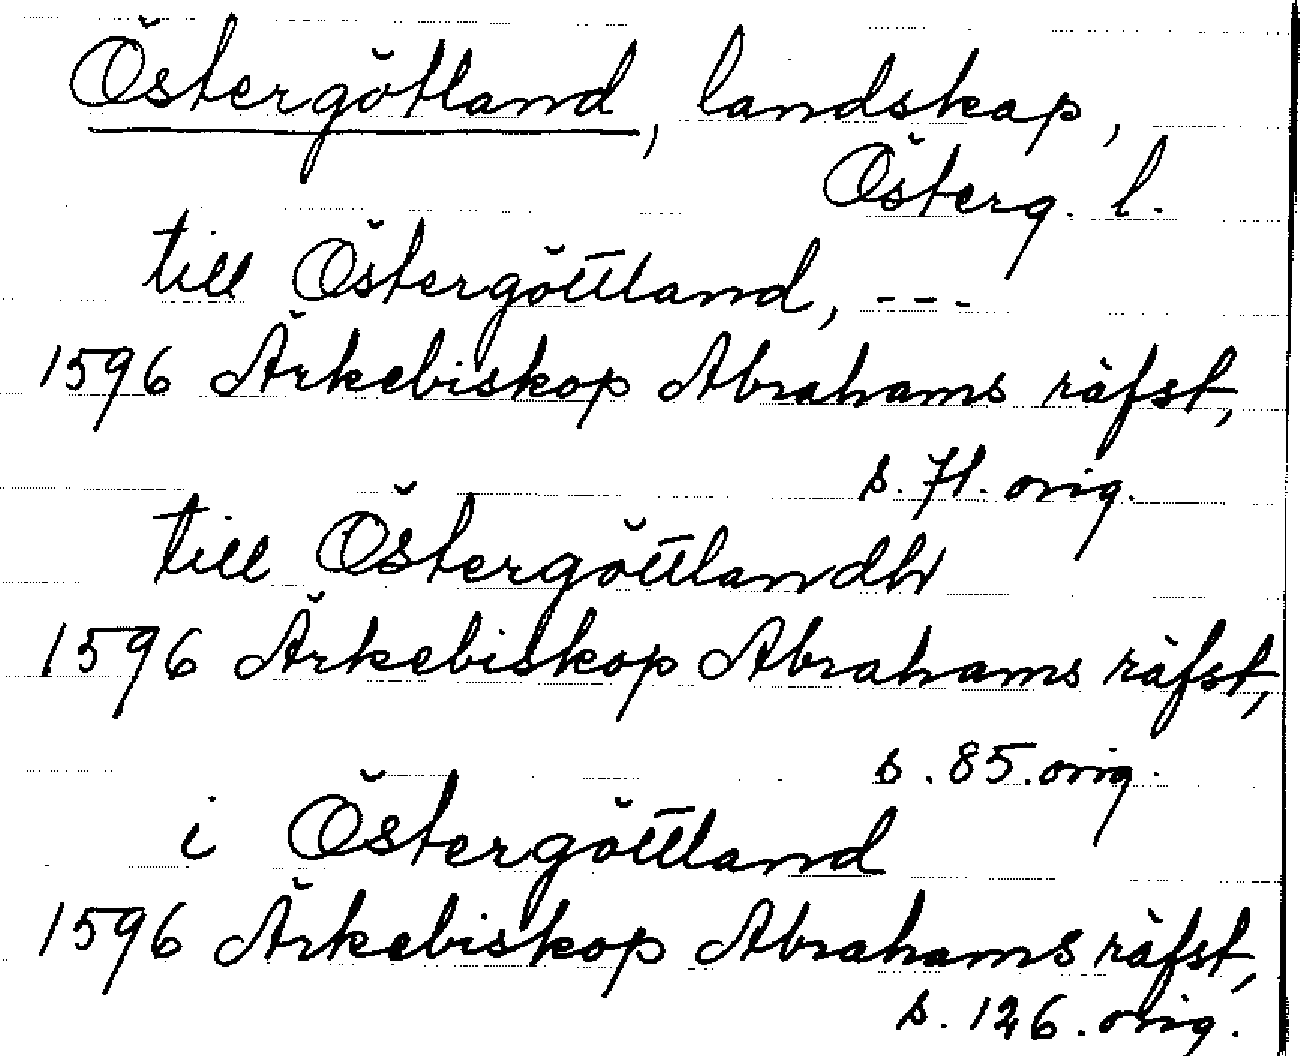 Östergötland, landskap,
Österg. l.
till Östergöttland, ---
1596 Ärkebiskop Abrahams räfst,
s. 71. orig.
till Östergöttlandh
1596 Ärkebiskop Abrahams räfst,
s. 85. orig.
i Östergöttland
1596 Ärkebiskop Abrahams räfst,
s. 126. orig.